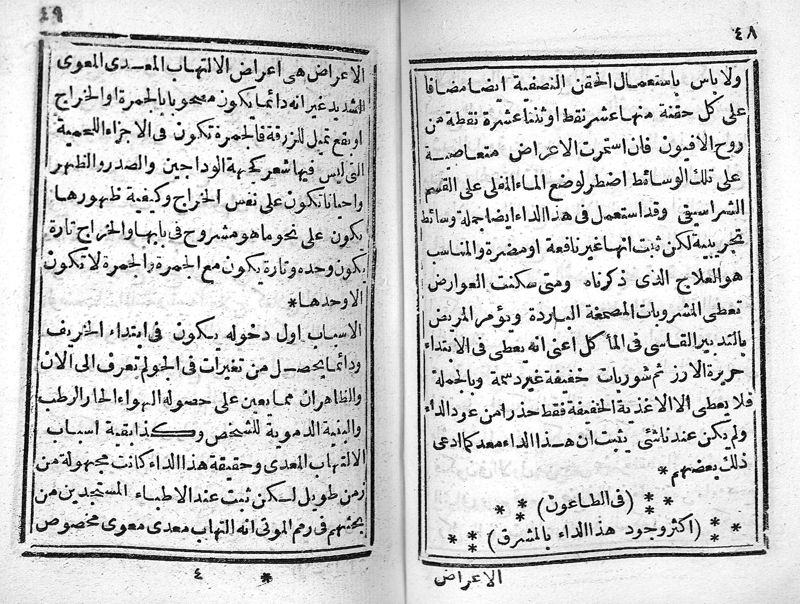 ٤٨
ولا باس باستعمال الحقن النصفية ايضا مضافا
على كل حقنة منها عشر نقط او ثنتا عشرة نقطة من
روح الافيون فان استمرت الاعراض متعاصية
على تلك الوسائط اضطر لوضع الماء المغلى على القسم
الشراسيفى وقد استعمل فى هذا الداء ايضا جملة وسائط
تجريبية لكن ثبت انها غير نافعة او مضرة والمناسب
هو العلاج الذى ذكرناه ومتى سكنت العوارض
تعطى المشروبات المصمغة الباردة ويؤمر المريض
بالتدبير القاسى فى المأ كل اعنى انه يعطى فى الابتداء
حريرة الارز ثم شوربات خفيفة غير دسمة وبالجملة
فلا يعطى الا الاغذية الخفيفة فقط حذرا من عود الداء
ولم يكن عندنا شئ يثبت ان هذا الداء معد كما ادعى
ذلك بعضهم *
* * (فى الطاعون) * *
* * (اكثر وجود هذا الداء بالمشرق) * *
الاعراض
٤٩
الاعراض هى اعراض الالتهاب المعدى المعوى
الشديد غير انه دائما يكون مصحوبا بالجمرة او الخراج
او بقع تميل للزرقة فالجمرة تكون فى الاجزاء اللحمية
التى ليس فيها شعر كجهة الوداجين والصدر والظهر
واحيانا تكون على نفس الخراج وكيفية ظهورها
يكون على نحو ما هو مشروح فى بابها والخراج تارة
يكون وحده وتارة يكون مع الجمرة والجمرة لا تكون
الا وحدها *
الاسباب اول دخوله يكون فى ابتداء الخريف
ودائما يحصل من تغيرات فى الجو لم تعرف الى الان
والظاهر ان مما يعين على حصوله الهواء الحار الرطب
والبنية الدموية للشخص وكذا بقية اسباب
الالتهاب المعدى وحقيقة هذا الداء كانت مجهولة من
زمن طويل لكن ثبت عند الاطباء المستجدين من
بحثهم فى رمم الموتى انه التهاب معدى معوى مخصوص
* ٤